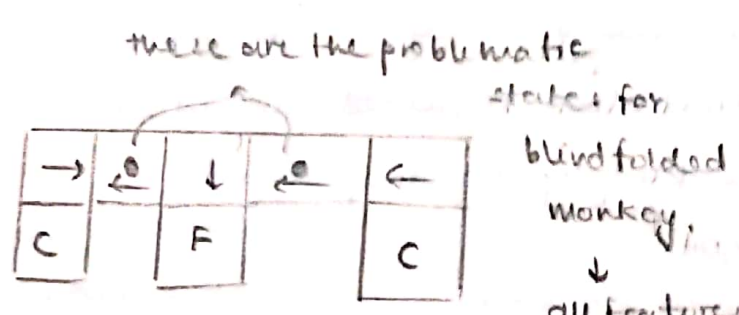 these are the problematic
states for
blindfolded
monkey.
↓
all
→ ← ↓ ← ←
C F C